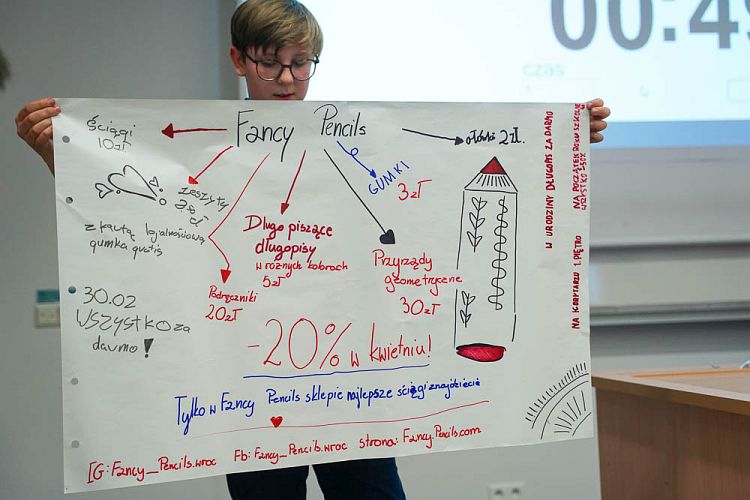 00:49
czas
Fancy Pencils
ściągi
10zł
ołówki 2zł.
GUMKI
3zł
zeszyty
z kartą lojalnościową
gumka gratis
Długo piszące
długopisy
w różnych kolorach
5zł
Przyrządy
geometryczne
30zł
Podręczniki
20zł
30.02
WSZYSTKO za
darmo!
-20% w kwietniu!
Tylko w Fancy Pencils sklepie najlepsze ściągi znajdziecie
IG: Fancy_Pencils.wroc Fb: Fancy_Pencils.wroc strona: Fancy.Pencils.com
W URODZINY DŁUGOPIS ZA DARMO
NA POCZĄTEK ROKU SZKOLNE
WSZYSTKO -50%
NA KORYTARZU 1. PIĘTRO